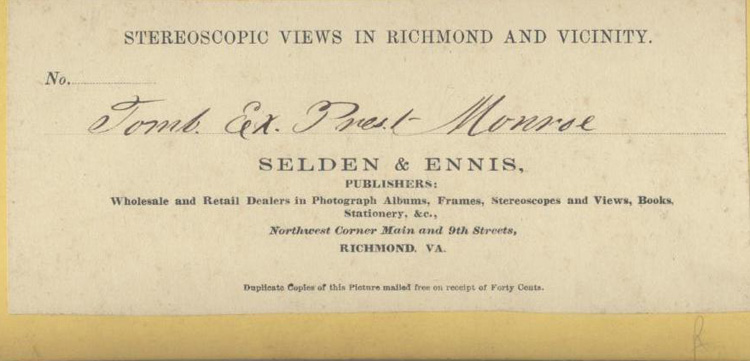 STEREOSCOPIC VIEWS IN RICHMOND AND VICINITY.
No.
Tomb. Ex. Prest Monroe
SELDEN & ENNIS,
PUBLISHERS:
Wholesale and Retail Dealers in Photograph Albums, Frames, Stereoscopes and Views, Books,
Stationery, &c.,
Northwest Corner Main and 9th Streets,
RICHMOND. VA.
Duplicate Copies of this Picture mailed free on receipt of Forty Cents.